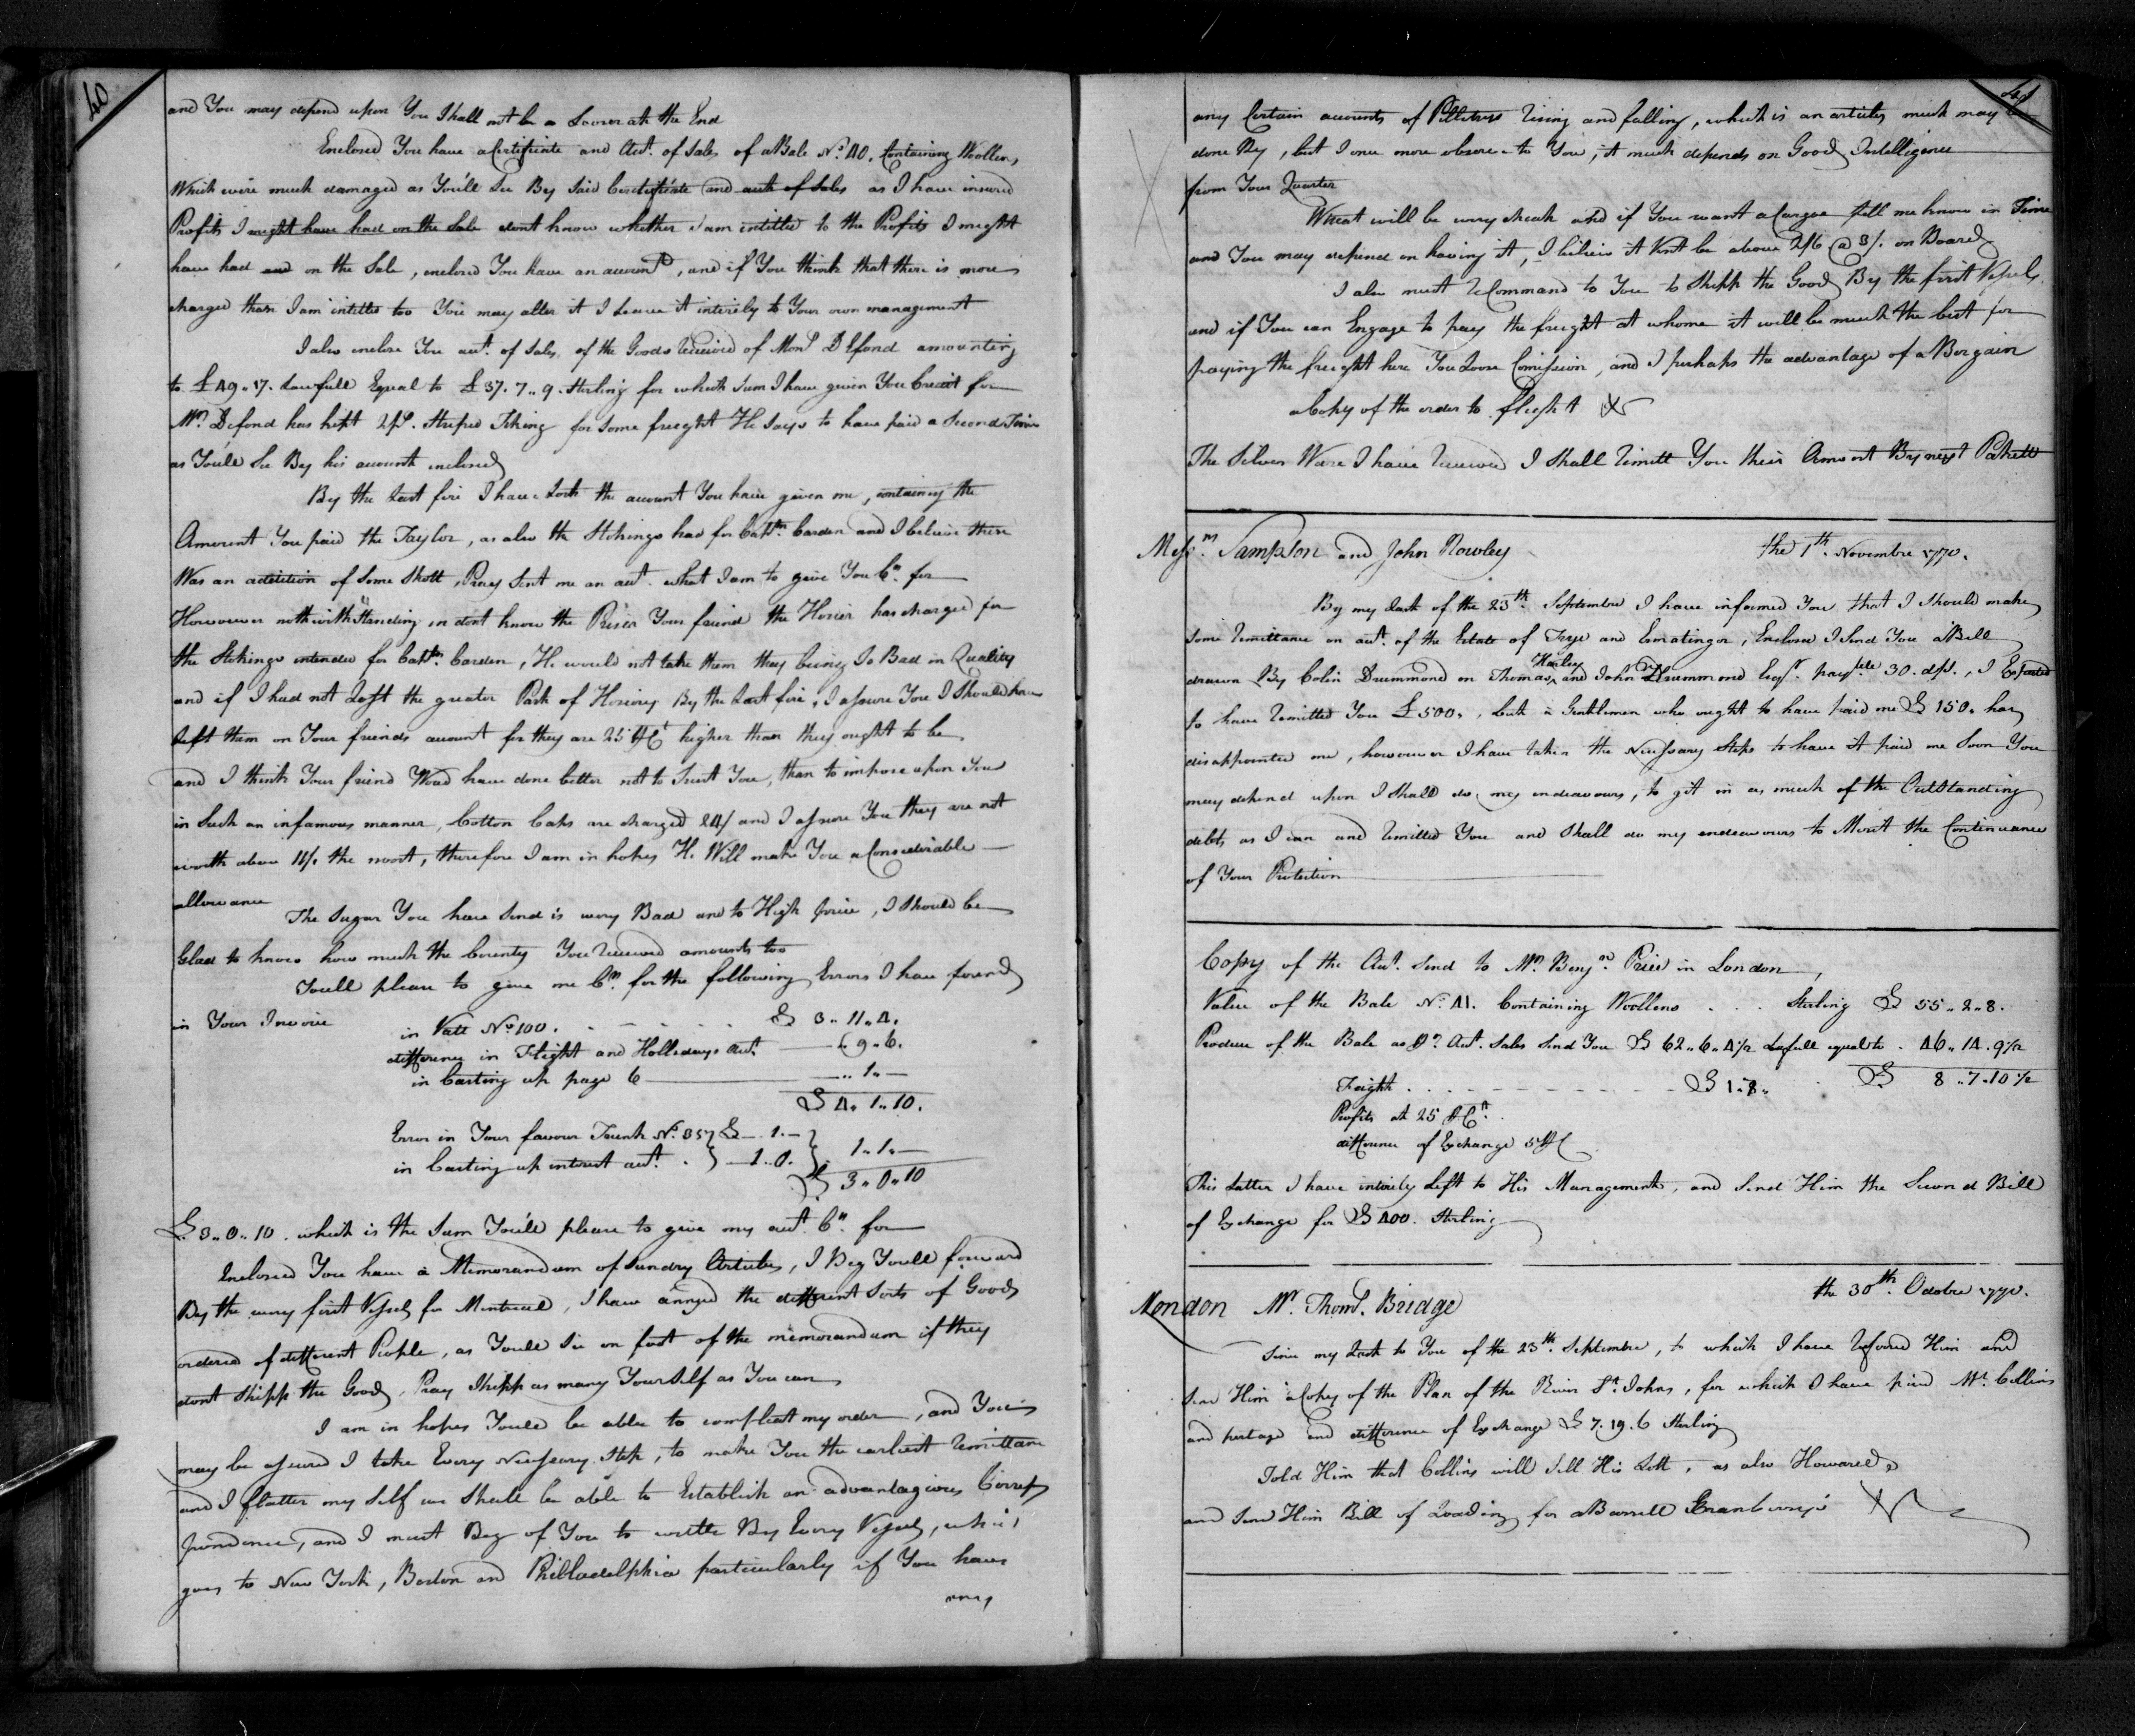 40
and You may depend upon You Shall not be a Looser att the End
Enclosed You have a Certificate and Act. of Sales of a Bale No. 40. Containing Woollen,
Which were much damaged as You'll See By Said Certificate and act of Sales as I have insured
Profits I might have had on the Sale dont know whether I am intitled to the Profits I might
have had and on the Sale, enclosed You have an account, and if You think that there is more
charged than I am intitled too You may alter it I Leave it intirely to Your own management
I also inclose You act. of Sales, of the Goods Received of Monr. Defond amounting
to £ 49 " 17. Lawfull Equal to £ 37. 7 " 9. Sterling for which Sum I have given You Credit for
Mr. Defond has kept 2 ps. Striped Tiking for Some freight He Says to have paid a Second Time
as Youll See By his account inclosed
By the Last fire I have Lost the account You have given me, containing the
Amount You paid the Taylor, as also the Stokings had for Captn. Carden and I believe there
Was an addition of Some Shott, Pray Sent me an act. what I am to give You Cr. for
Howower nothwithStanding in dont know the Prices Your friend the Hosier has charged for
the Stokings intended for Captn. Carden, He would not take them they being So Bad in Quality
and if I had not Lost the greater Part of Hosiery By the Last fire, I assure You I Should have
Left them on Your friends account for they are 25 p Ct higher than they ought to be
and I think Your friend Woud have done better not to Trust You, than to impose upon You
in Such an infamous manner, Cotton Caps are charged 24/ and I assure You they are not
worth above 11/. the most, therefore I am in hopes He Will make You a Considerable
allowance
The Sugar You have Send is wery Bad and to High price, I Should be
Glad to know how much the Bounty You Received amounts too
Youll please to give me Cr. for the following Errors I have found
in Your Invoice
in Vatt No 100. £ 3 " 11 " 4.
difference in Flight and Hollidays act. " 9 " 6.
in Casting up page 6 " 1 " —
£ 4 " 1 " 10.
Error in Your favour Trunk No. 35 £ — . 1. —
in Casting up intrest act. . — 1 " 0. 1 " 1 " —
£ 3 " 0 " 10
£ 3 " 0 " 10. which is the Sum You'll please to give my act. Cr. for
Inclosed You have a Memorandum of Sundry Articles, I Beg Youll forward
By the wery first Vessel for Montreal, I have the different Sorts of Goods
ordered of different People, as Youll See on foot of the memorandum if they
dont Shipp the Goods, Pray Shipp as many YourSelf as You can
I am in hopes Youll be able to compleat my order, and You
may be assured I take Every Nessesary Step, to make You the earliest Remittance
and I flatter my Self we Shall be able to Establish an advantagious Corres
pondence, and I must Beg of You to write By Every Vessel, which
goes to New York, Boston and Philladelphia particularly if You have
any
41
any Certain accounts of Pelletrys Rising and falling, which is an articles much may be
done By, but I once more observe to You, it much depends on Good Intelligence
from Your Quarter
Wheat will be wery cheak and if You want a Cargoe lett me know in Time
and You may depend on having it, I believe it Wont be above 2/6 @ 3/. on Board
I also must ReCommand to You to Shipp the Goods By the first Vessels
and if You can Engage to pay the freight at whome it will be much the best for
paying the freight here You Loose Comission, and I perhaps the advantage of a Bargain
a Copy of the order to flight
The Silver Ware I have Received I Shall Remitt You their Amount By next Pakett
Messrs. Sampson and John Rowley the 1th. Novembre 1770.
By my Last of the 23th. Septembre I have informed You that I Should make
Some Remittance on act. of the Estate of Frye and Ermatinger, Enclosed I Send You a Bill
drawn By Colin Drummond on Thomas, Harley and John Drummond Esqr. payble 30. d/s., I Expected
to have Remitted You £ 500., but a Gentleman who ought to have paid me £ 150. has
disappointed me, howower I have taken the Nessesary Steps to have it paid me Soon You
may depend upon I Shall do my endeavours, to git in as much of the OutStanding
debts as I can and Remitted You and Shall do my endeavours to Merit the Continuance
of Your Protection
Copy of the Act. Send to Mr. Benjn. Price in London,
Value of the Bale No. 41. Containing Woollens . . . Sterling £ 55 " 2 " 8.
Produce of the Bale as pr. Act. Sales Send You £ 62 " 6 " 4 1/2 Lafull equal to . 46 " 14 . 9 1/2
Freight . . . £ 1 " 8 " £ 8 " 7 " 10 1/2
Profits at 25 p Ct.
difference of Exchange 5 p C
This Latter I have intirely Left to His Management, and Send Him the Second Bill
of Exchange for £ 400. Sterling
London Mr. Thoms. Bridge the 30th. Octobre 1770.
Since my Last to You of the 23th. Septembre, to which I have Reffered Him and
Send Him a Copy of the Plan of the River St. Johns, for which I have paid Mr. Collins
and postage and difference of Exchange £ 7. 19. 6 Sterling
Told Him that Collins will Sell His Lott, as also Howard,
and Send Him Bill of Loading for a Barrell Cranberrys